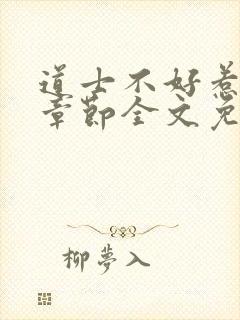 道士不好惹
章节全文免
柳夢入